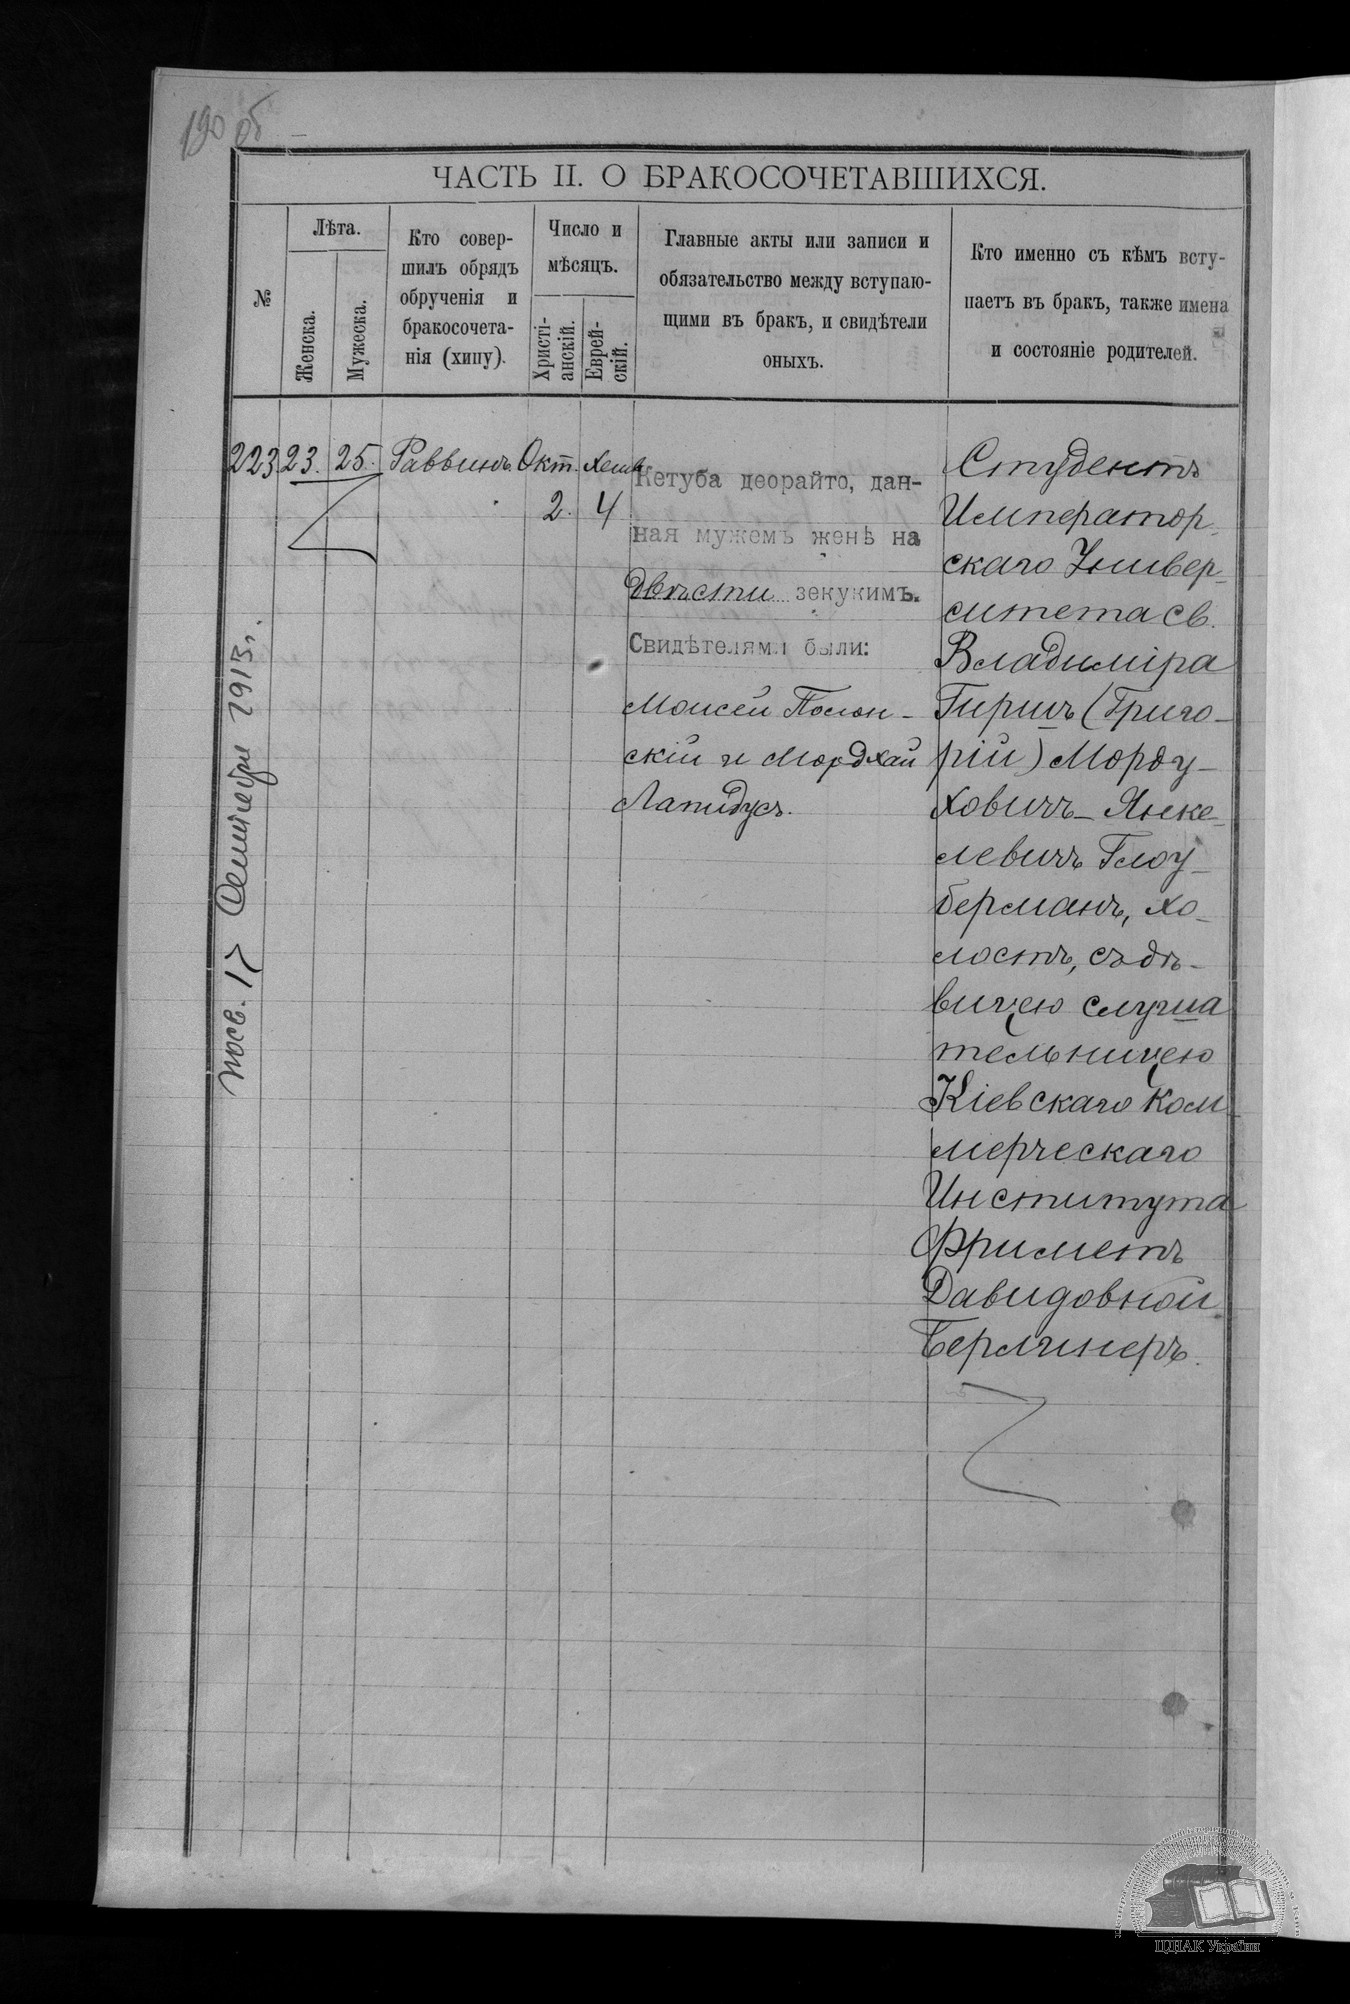 190 об
ЧАСТЬ II. О БРАКОСОЧЕТАВШИХСЯ.
№
Лѣта.
Женска.
Мужеска.
Кто совер-
шилъ обрядъ
обрученія и
бракосочета-
нія (хипу).
Число и
мѣсяцъ.
Христі-
анскій.
Еврей-
скій.
Главные акты или записи и
обязательство между вступаю-
щими въ бракъ, и свидѣтели
оныхъ.
Кто именно съ кѣмъ всту-
паетъ въ бракъ, также имена
и состояніе родителей.
223 23. 25. Раввинъ Окт. Хешв
2. 4
Кетуба деорайто, дан-
ная мужемъ женѣ на
двѣсти зекукимъ.
Свидѣтелями были:
Моисей Полон-
скій и Мордхай
Лапидусъ.
Студентъ
Император-
скаго Универ-
ситета Св.
Владиміра
Гиршъ (Григо-
рій)Морду-
ховичъ-Янке-
левичъ Глоу-
берманъ, хо-
лостъ, съ дѣ-
вицею слуша
тельницею
Кіевскаго Ком-
мерческаго
Института
Фриметъ
Давидовной
Берлинеръ.
посв. 17 Сентября 1913 г.
ЦДІАК України